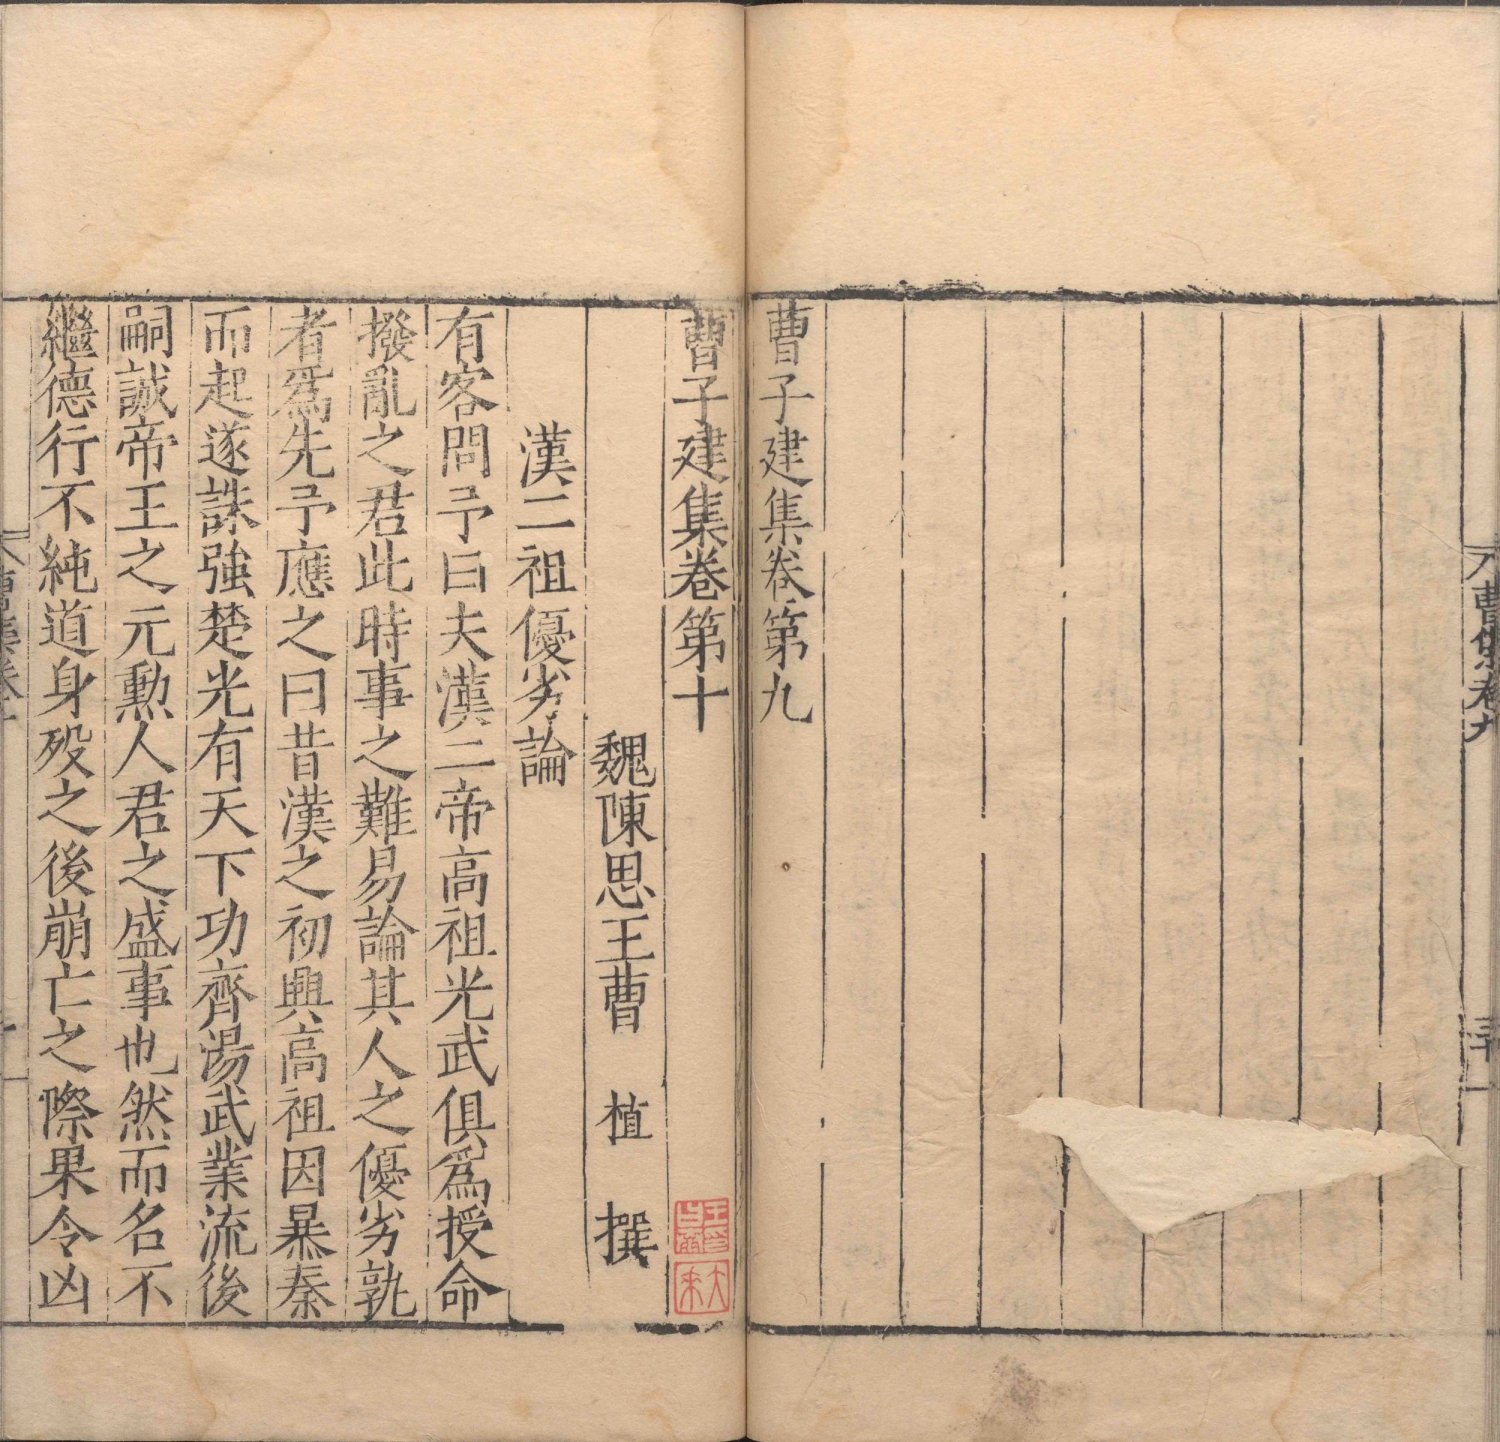 曹集卷九
三十一
曹子建集卷第九
曹子建集卷第十
魏陳思王曹植撰
漢二祖優劣論
有客問予曰夫漢二帝高祖光武俱爲授命
撥亂之君此時事之難易論其人之優劣孰
者爲先予應之曰昔漢之初興高祖因暴秦
而起遂誅強楚光有天下功齊湯武業流後
嗣誠帝王之元勳人君之盛事也然而名不
繼德行不純道身歿之後崩亡之際果令凶
曹集卷十